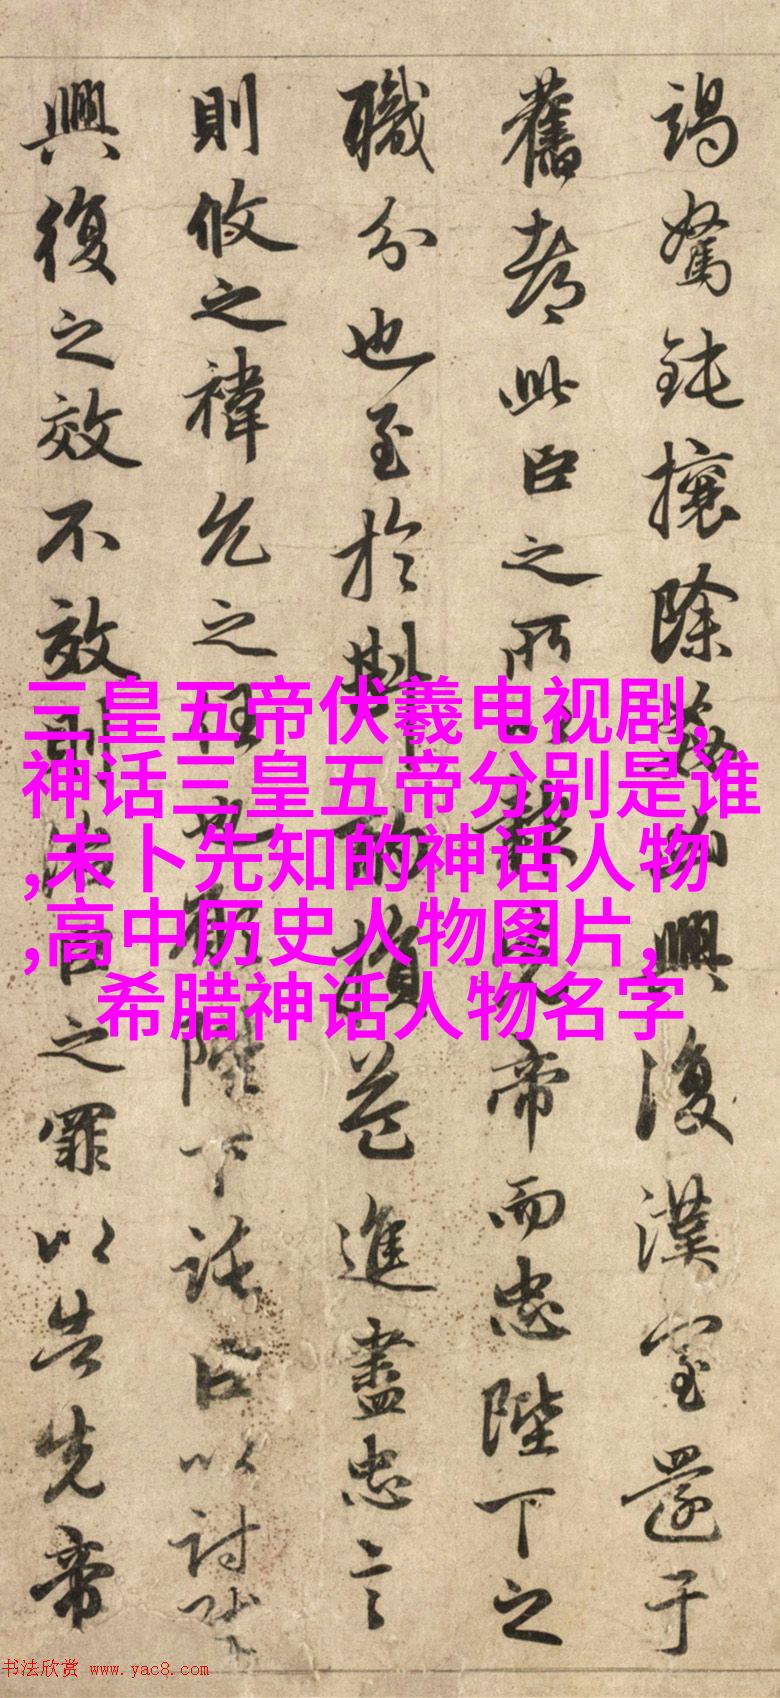 竭駑鈍攘除姦凶興復漢室還于
舊都此臣之所報先帝而忠陛下之
職分也至於斟損益進盡忠言
則攸之禕允之任也願陛下託臣以討賊
興復之效不效則治臣之罪以告先帝
三皇五帝伏羲电视剧,
神话三皇五帝分别是谁
,未卜先知的神话人物
,高中历史人物图片,
希腊神话人物名字
书法欣赏 www.yac8.com